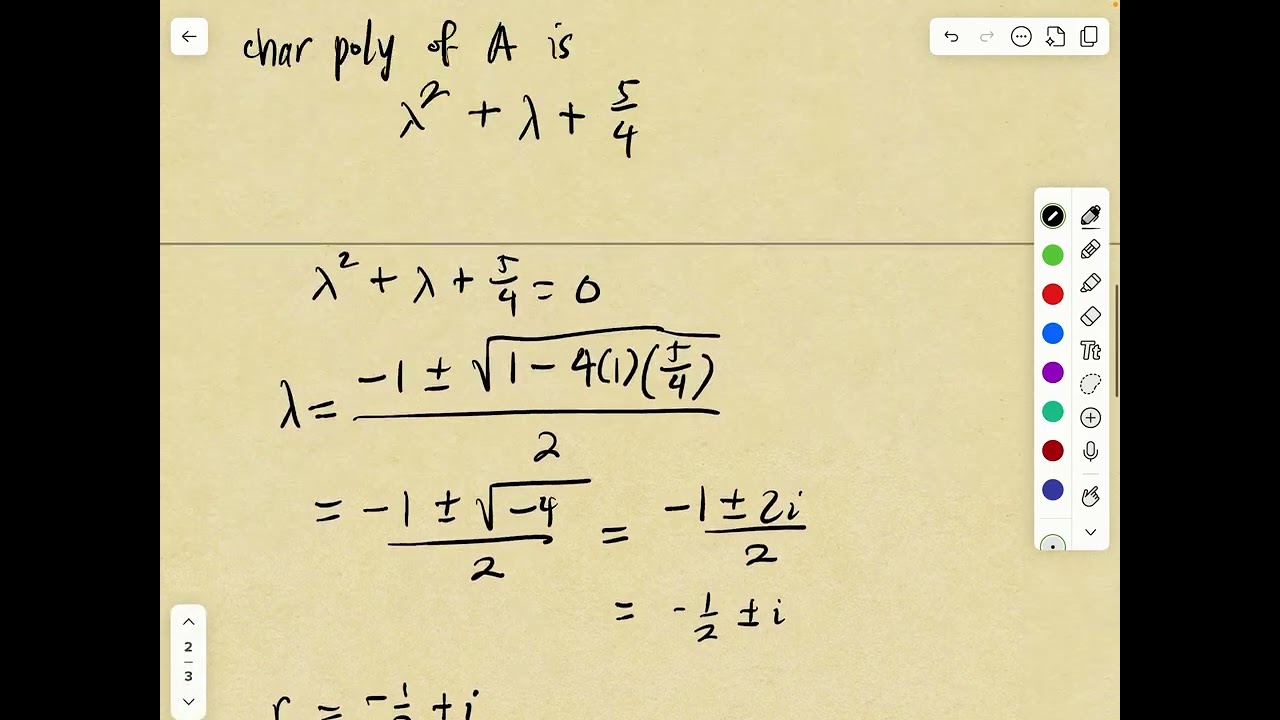 char poly of A is
λ² + λ + 5/4
λ² + λ + 5/4 = 0
λ = (-1 ± √(1 - 4(1)(5/4)))/2
= (-1 ± √-4)/2 = (-1 ± 2i)/2
= -1/2 ± i
r = -1/2 + i
Tt
2
3